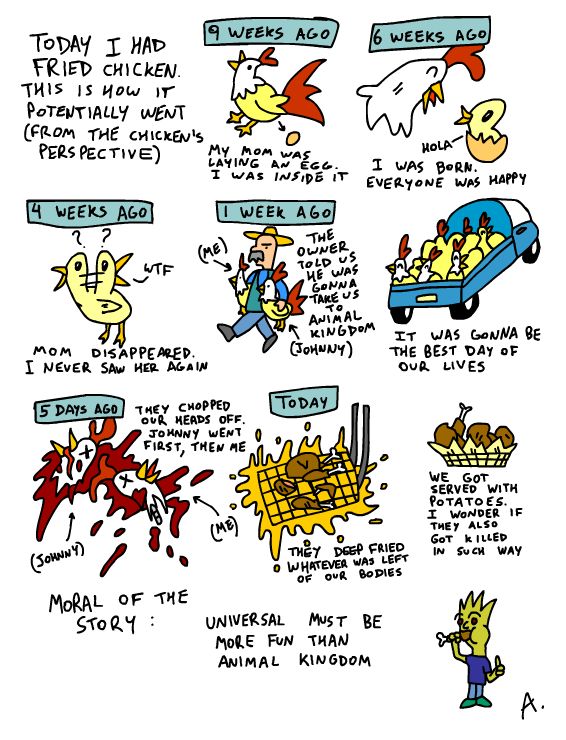 TODAY I HAD
FRIED CHICKEN.
THIS IS HOW IT
POTENTIALLY WENT
(FROM THE CHICKEN'S
PERSPECTIVE)
9 WEEKS AGO
MY MOM WAS
LAYING AN EGG.
I WAS INSIDE IT
6 WEEKS AGO
HOLA
I WAS BORN.
EVERYONE WAS HAPPY
4 WEEKS AGO
? ?
WTF
MOM DISAPPEARED.
I NEVER SAW HER AGAIN
1 WEEK AGO
(ME)
THE
OWNER
TOLD US
HE WAS
GONNA
TAKE US
TO
ANIMAL
KINGDOM
(JOHNNY)
IT WAS GONNA BE
THE BEST DAY OF
OUR LIVES
5 DAYS AGO
THEY CHOPPED
OUR HEADS OFF.
JOHNNY WENT
FIRST, THEN ME
(JOHNNY)
(ME)
TODAY
THEY DEEP FRIED
WHATEVER WAS LEFT
OF OUR BODIES
WE GOT
SERVED WITH
POTATOES.
I WONDER IF
THEY ALSO
GOT KILLED
IN SUCH WAY
MORAL OF THE
STORY :
UNIVERSAL MUST BE
MORE FUN THAN
ANIMAL KINGDOM
A.